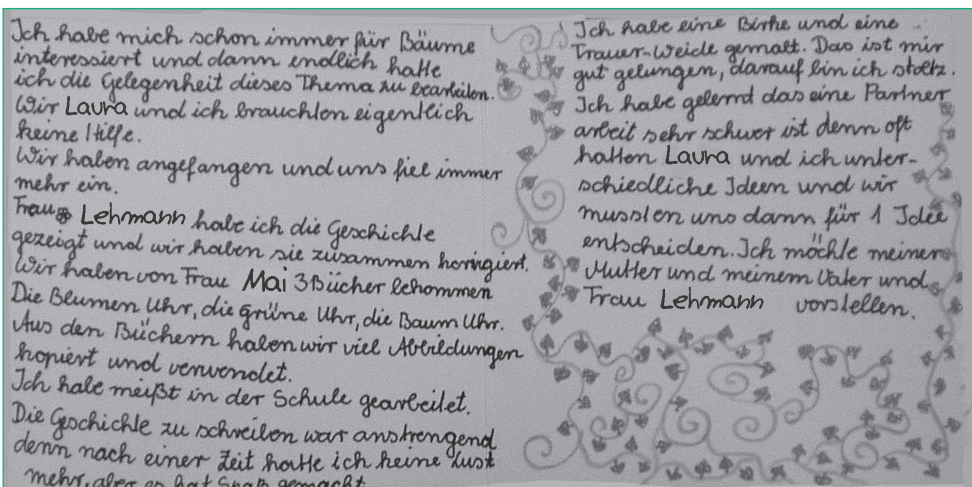 Ich habe mich schon immer für Bäume
interessiert und dann endlich hatte
ich die Gelegenheit dieses Thema zu bearbeiten.
Wir Laura und ich brauchten eigentlich
keine Hilfe.
Wir haben angefangen und uns fiel immer
mehr ein.
Frau Lehmann habe ich die Geschichte
gezeigt und wir haben sie züsammen koringiert.
Wir haben von Frau Mai 3 Bücher bekommen
Die Blumen Uhr, die grüne Uhr, die Baum Uhr.
Aus den Büchern haben wir viel Abbildungen
kopiert und verwendet.
Ich habe meißt in der Schule gearbeitet.
Die Geschichte zu schreiben war anstrengend
denn nach einer Zeit hatte ich keine Lust
mehr, aber es hat Spaß gemacht
Ich habe eine Birke und eine
Trauer-Weide gemalt. Das ist mir
gut gelungen, darauf bin ich stoltz.
Ich habe gelernd das eine Partner
arbeit sehr schwer ist denn oft
hatten Laura und ich unter-
schiedliche Ideen und wir
mussten uns dann für 1 Idee
entscheiden. Ich möchte meiner
Mutter und meinem Vater und
Frau Lehmann vorstellen.